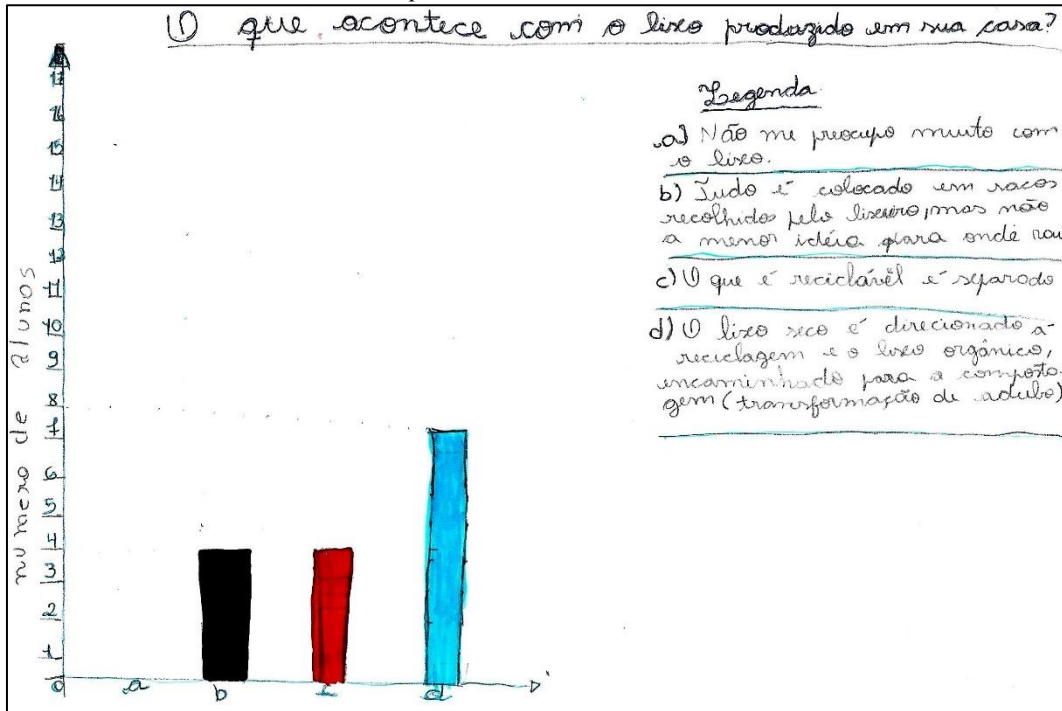 O que acontece com o lixo produzido em sua casa?
Legenda
a) Não me preocupo muito com
o lixo.
b) Tudo é colocado em sacos
recolhidos pelo lixeiro, mas não
a menor idéia para onde vai
c) O que é reciclável é separado
d) O lixo seco é direcionado a
reciclagem e o lixo orgânico,
encaminhado para a composta
gem (transformação de adubo)
numero de alunos
17
16
15
14
13
12
11
10
9
8
7
6
5
4
3
2
1
0
a b c d